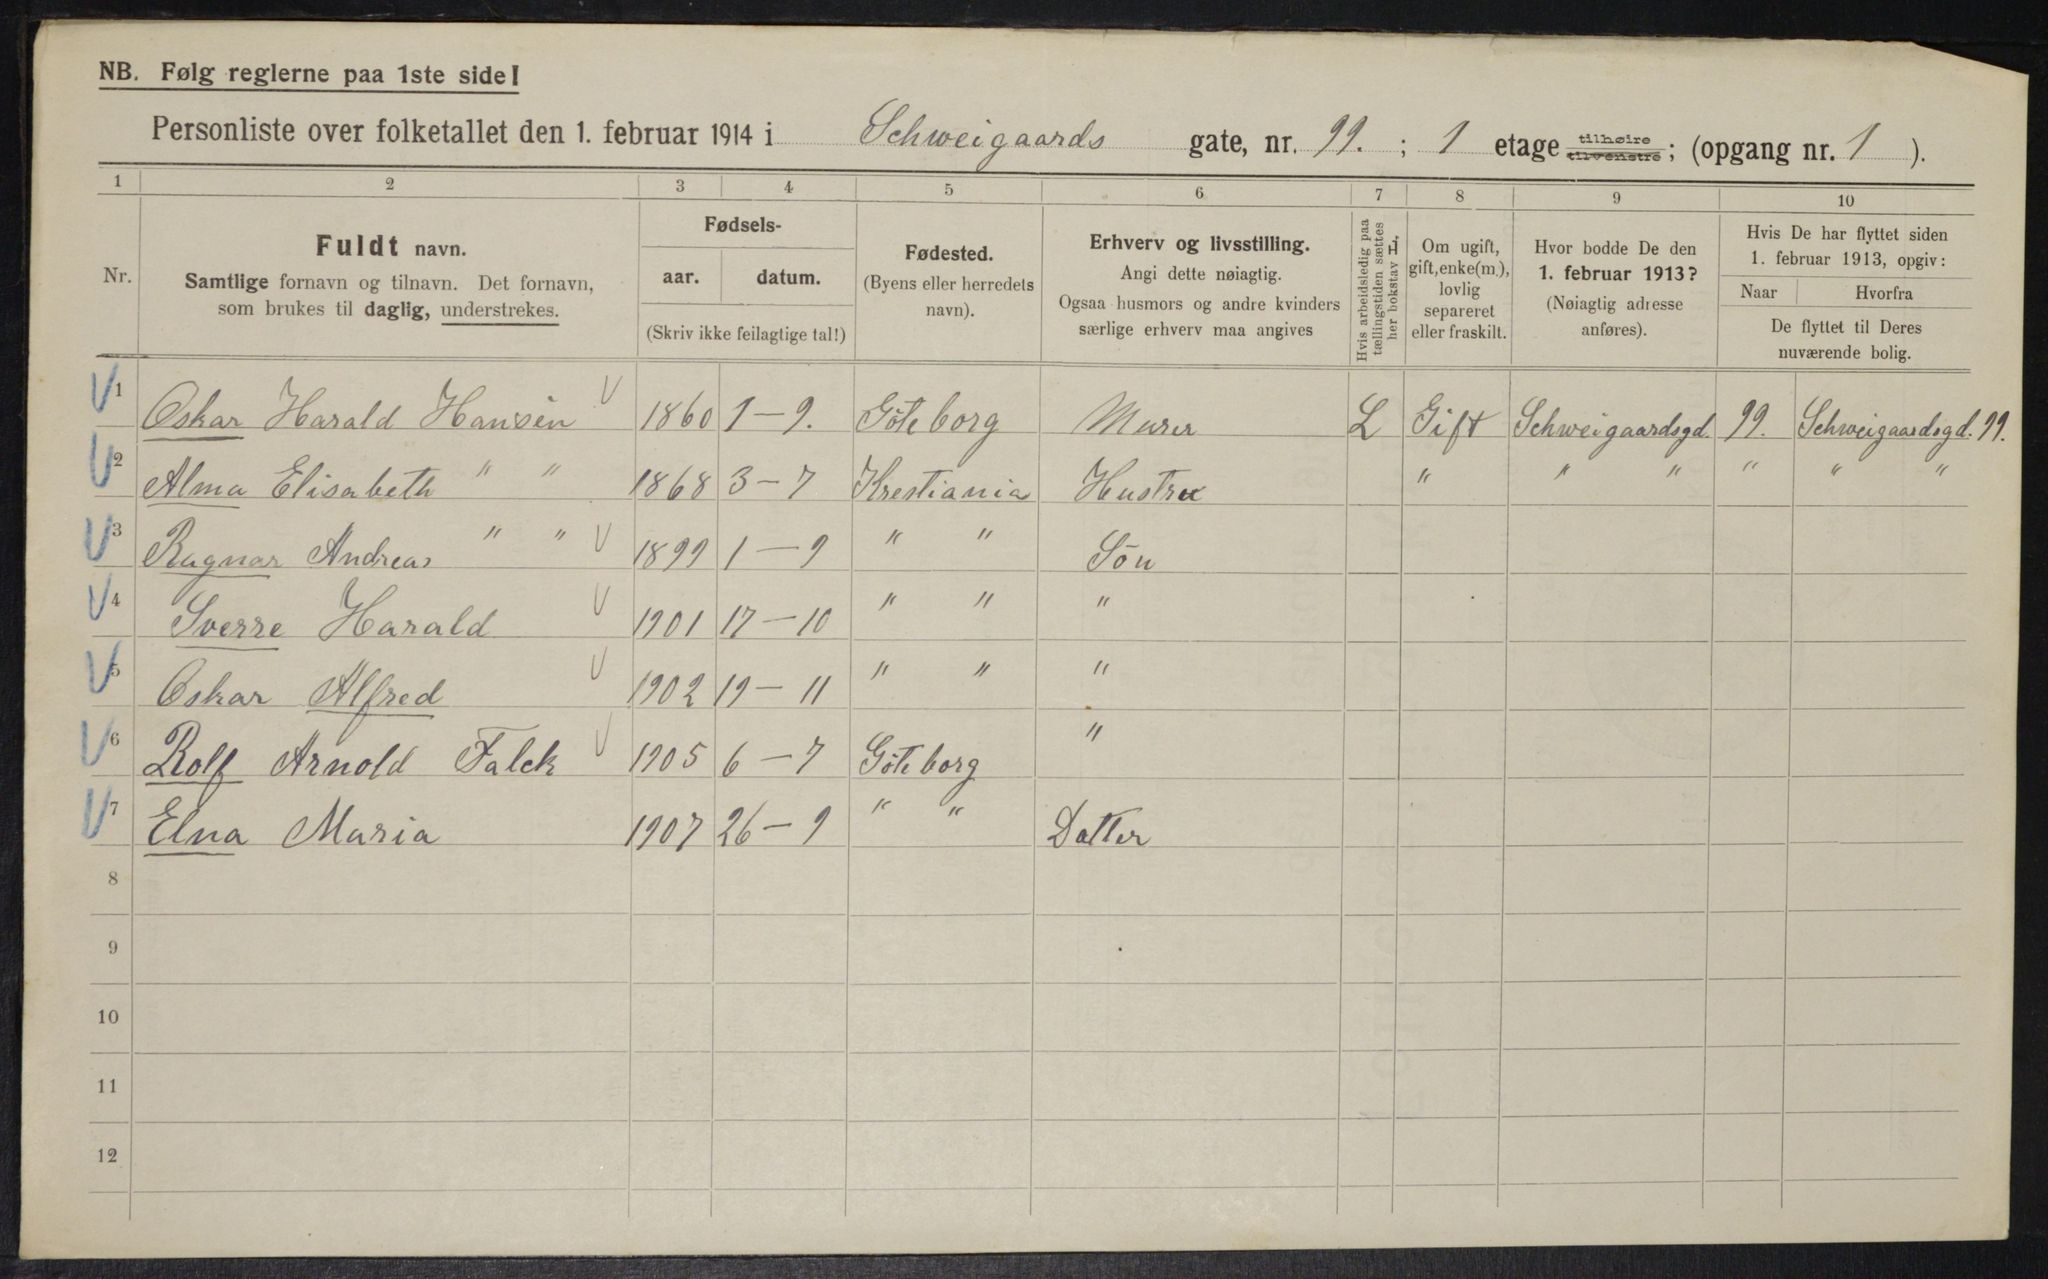 NB. Følg reglerne paa 1ste side!
Personliste over folketallet den 1. februar 1914 i Schweigaards gate, nr. 99. ; 1 etage tilhøire tilvenstre ; (opgang nr. 1 ).
1 2 3 4 5 6 7 8 9 10
Nr.
Fuldt navn.
Samtlige fornavn og tilnavn. Det fornavn,
som brukes til daglig, understrekes.
Fødsels-
aar. datum.
(Skriv ikke feilagtige tal!)
Fødested.
(Byens eller herredets
navn).
Erhverv og livsstilling.
Angi dette nøiagtig.
Ogsaa husmors og andre kvinders
særlige erhverv maa angives
Hvis arbeidsledig paa
tællingstiden sættes
her bokstav L,
Om ugift,
gift, enke(m.),
lovlig
separeret
eller fraskilt.
Hvor bodde De den
1. februar 1913?
(Nøiagtig adresse
anføres).
Hvis De har flyttet siden
1. februar 1913, opgiv:
Naar Hvorfra
De flyttet til Deres
nuværende bolig.
1 Oskar Harald Hansen 1860 1-9. Göteborg Murer L Gift Schweigaardsgd. 99. Schweigaardsgd. 99.
2 Alma Elisabeth " " 1868 3-7 Krestiania Hustru " " " " " "
3 Ragnar Andreas " " 1899 1-9 " " Sön
4 Sverre Harald 1901 17-10 " " "
5 Oskar Alfred 1902 19-11 " " "
6 Rolf Arnold Falck 1905 6-7 Göteborg "
7 Elna Maria 1907 26-9 " " Datter
8
9
10
11
12